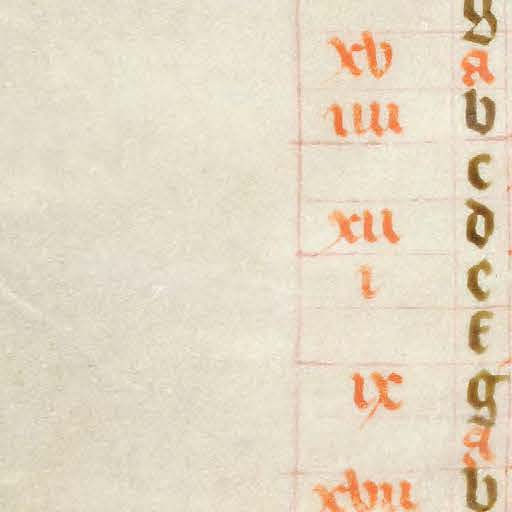 g
xv a
iiii b
c
xii d
i e
f
ix g
a
xvii b